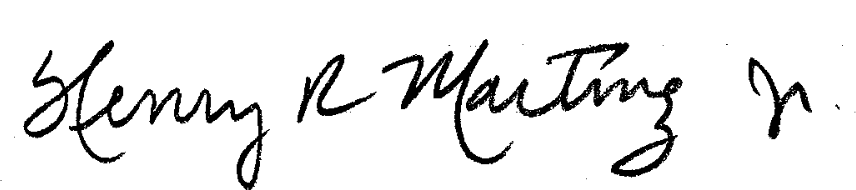 Henry R Marting Jr.